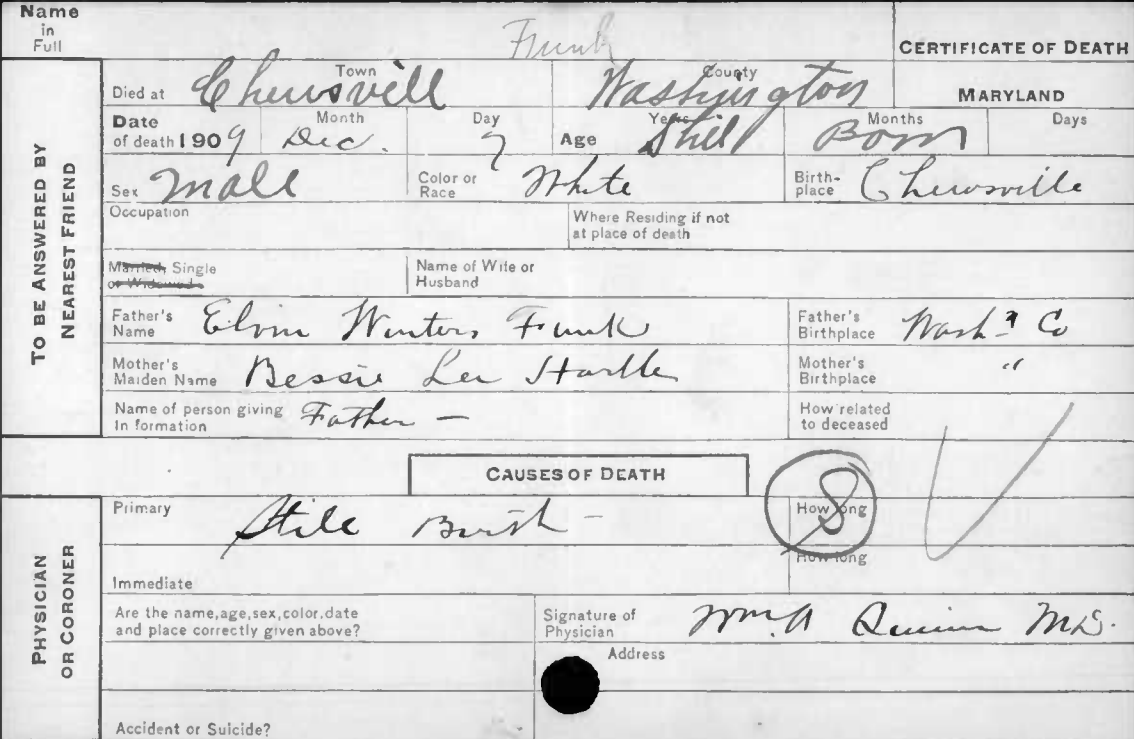 Name in Full Funk
CERTIFICATE OF DEATH
TO BE ANSWERED BY NEAREST FRIEND
Died at Chewsvill Town Washington County MARYLAND
Date of death 1909 Month Dec. Day 7 Age Years Still Months Born Days
Sex Male Color or Race White Birth-place Chewsville
Occupation Where Residing if not at place of death
Married, Single or Widowed Name of Wife or Husband
Father's Name Elvin Winters Funk Father's Birthplace Wash. Co
Mother's Maiden Name Bessie Lee Hartle Mother's Birthplace "
Name of person giving In formation Father — How related to deceased
CAUSES OF DEATH
PHYSICIAN OR CORONER
Primary Still Birth — How long 8
Immediate How long
Are the name,age,sex,color,date and place correctly given above? Signature of Physician Wm. A M.D.
Address
Accident or Suicide?